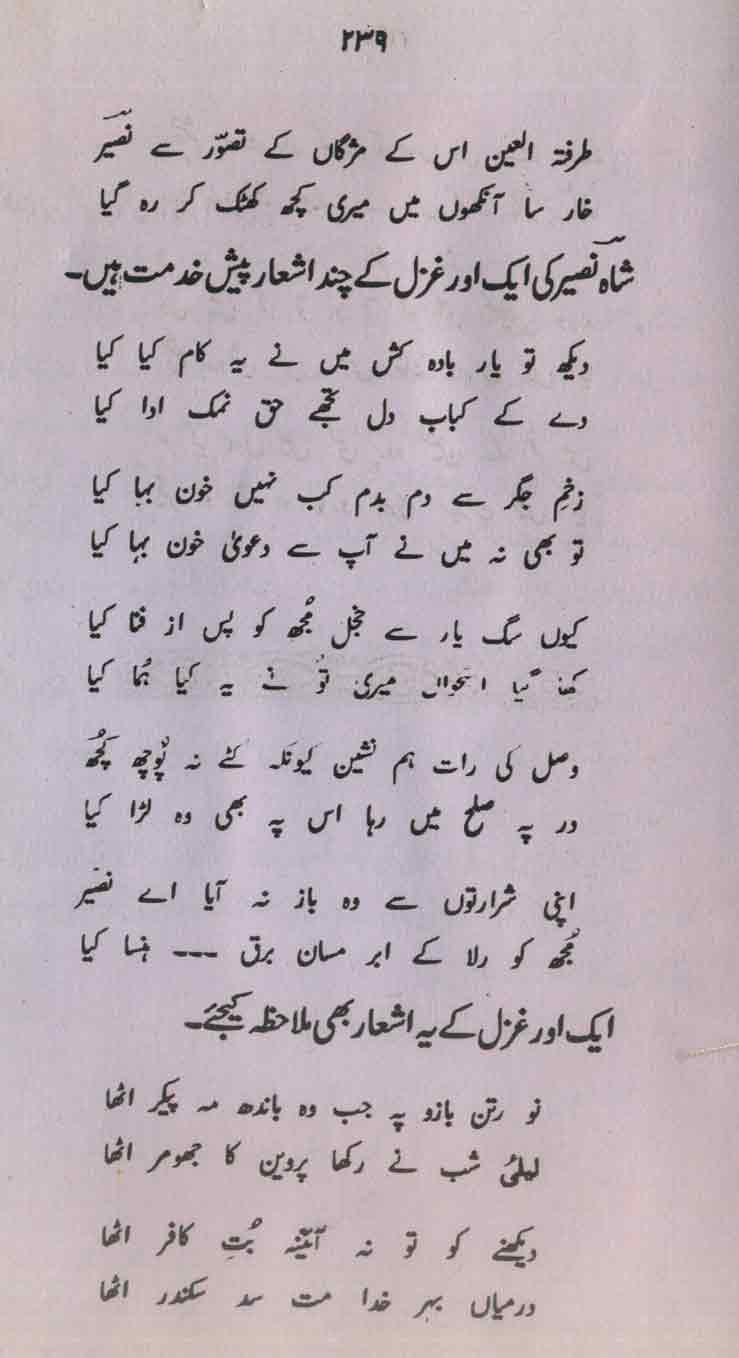 ۲۳۹
طرفتہ العین اس کے مژگاں کے تصوّر سے نصیر
خار سا آنکھوں میں میری کچھ کھٹک کر رہ گیا
شاہ نصیر کی ایک اور غزل کے چند اشعار پیش خدمت ہیں۔
دیکھ تو یار بادہ کش میں نے یہ کام کیا کیا
دے کے کباب دل تجھے حق نمک ادا کیا
زخمِ جگر سے دم بدم کب نہیں خون بہا کیا
تو بھی نہ میں نے آپ سے دعویٰ خون بہا کیا
کیوں سگ یار سے خجل مُجھ کو پس از فنا کیا
کھا گیا استخواں میری تُو نے یہ کیا ہُما کیا
وصل کی رات ہم نشین کیونکہ کٹے نہ پُوچھ کچُھ
در پہ صلح میں رہا اس پہ بھی وہ لڑا کیا
اپنی شرارتوں سے وہ باز نہ آیا اے نصیر
مُجھ کو رلا کے ابر مسان برق --- ہنسا کیا
ایک اور غزل کے یہ اشعار بھی ملاحظہ کیجئے۔
نو رتن بازو پہ جب وہ باندھ مہ پیکر اٹھا
لیلیٔ شب نے رکھا پروین کا جھومر اٹھا
دیکھنے کو تو نہ آئینہ بُتِ کافر اٹھا
درمیاں بہر خدا مت سد سکندر اٹھا